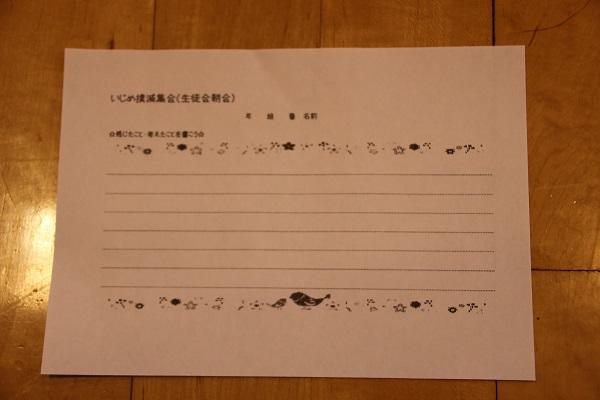 いじめ撲滅集会(生徒会朝会)
年 組 番 名前
☆感じたこと・考えたことを書こう☆